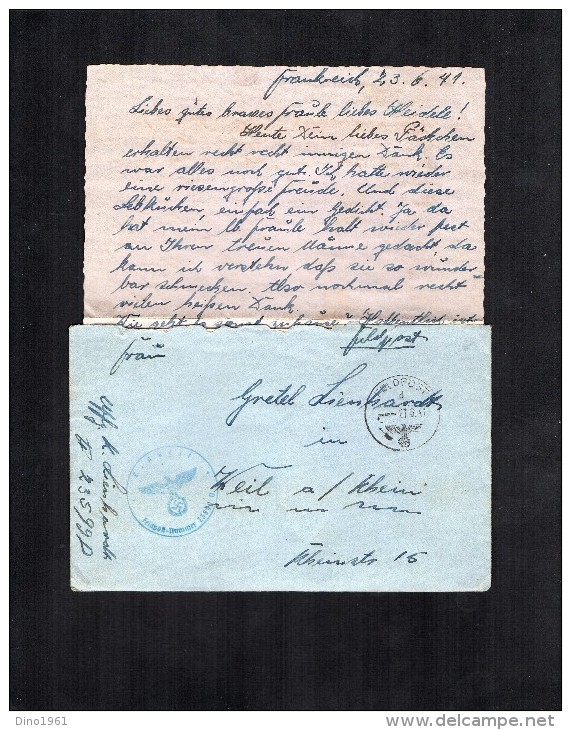 Frankreich, 23.6.41.
Liebes gutes braves Fraule liebes Heidele!
Heute Dein liebes Päckchen
erhalten recht recht innigen Dank. Es
war alles noch gut. Ich hatte wieder
eine riesengroße Freude. Und diese
Lebkuchen, einfach ein Gedicht. Ja da
hat mein lb Fraule halt wieder fest
an Ihren treuen Manne gedacht, da
kann ich verstehen daß sie so wunder-
bar schmecken. Also nochmal recht
vielen heißen Dank.
Wie geht es sonst zuhause? ist
Feldpost
Frau
Gretel Lienhardt
in
Weil a/Rhein
Rheinstr 15
FELDPOST
d
Feldpost-Nummer
Uffz. K. Lienhardt
23599D
Dino1961
delcampe.net